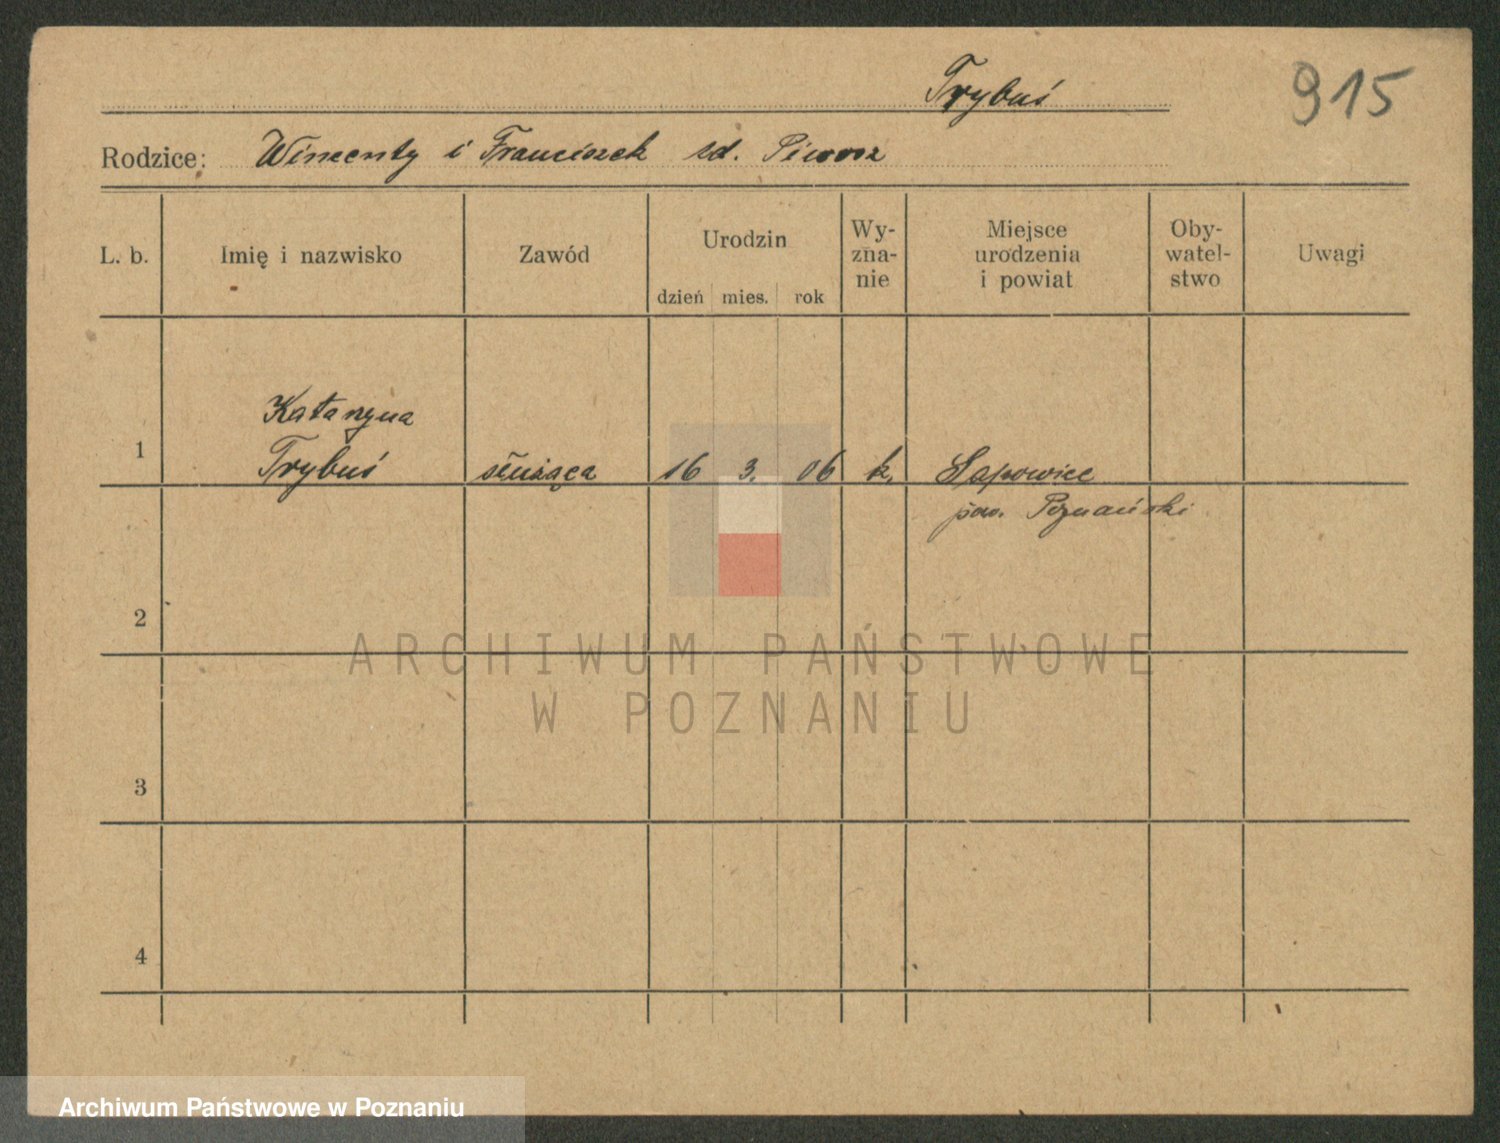 Trybuś
915
Rodzice: Wincenty i Franciszek zd. Piwosz
L. b.
Imię i nazwisko
Zawód
Urodzin
dzień mies. rok
Wy-
zna-
nie
Miejsce
urodzenia
i powiat
Oby-
watel-
stwo
Uwagi
Katarzyna
1 Trybuś służąca 16 3. 06 k. Sapowice
pow. Poznański
2
3
4
ARCHIWUM PAŃSTWOWE
W POZNANIU
Archiwum Państwowe w Poznaniu